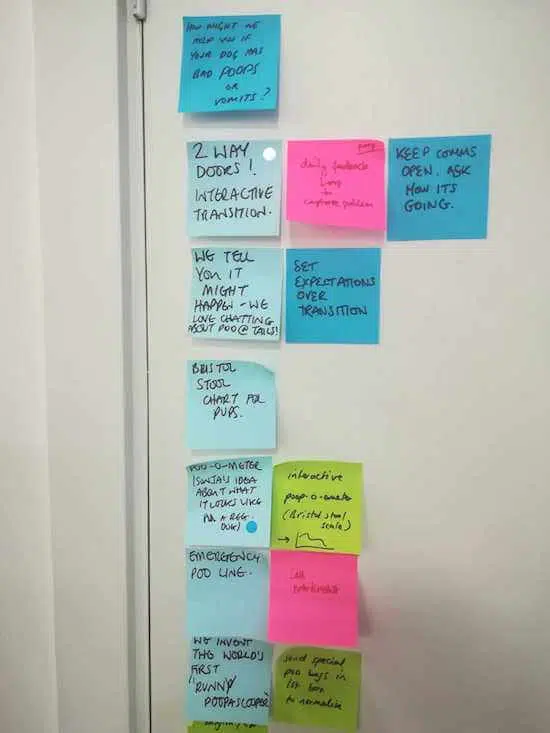 HOW MIGHT WE
HELP YOU IF
YOUR DOG HAS
BAD POOPS
OR
VOMITS?
2 WAY
DOORS!
INTERACTIVE
TRANSITION.
daily feedback
loop
to
problem
KEEP COMMS
OPEN. ASK
HOW ITS
GOING.
WE TELL
YOU IT
MIGHT
HAPPEN - WE
LOVE CHATTING
ABOUT POO @ TAILS!
SET
EXPECTATIONS
OVER
TRANSITION
BRISTOL
STOOL
CHART FOR
PUPS.
POO-O-METER
IDEA
ABOUT WHAT
IT LOOKS LIKE
DOG)
interactive
poop-o-meter
(Bristol stool
scale)
EMERGENCY
POO LINE.
WE INVENT
THE WORLD'S
FIRST
"RUNNY
POOPASCOOPER"
send special
poo bags in
1st box
to normalise